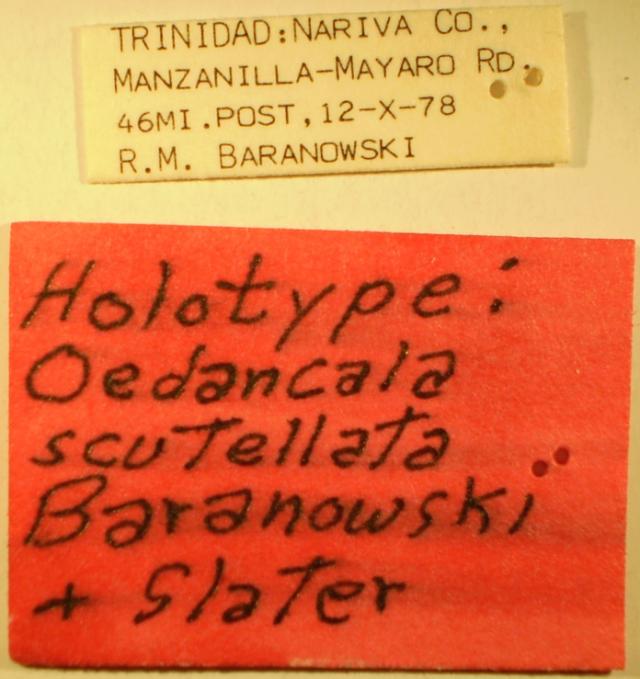 TRINIDAD:NARIVA CO.,
MANZANILLA-MAYARO RD.
46MI.POST,12-X-78
R.M. BARANOWSKI
Holotype:
Oedancala
scutellata
Baranowski
+ Slater